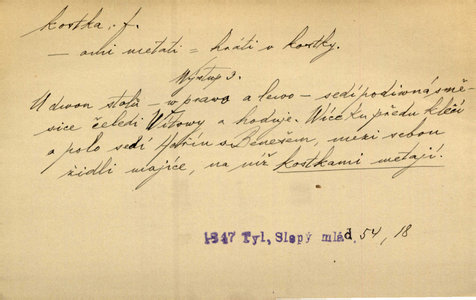 kostka, f.
— ami metati = hráti v kostky.
Výstup 3.
U dvou stolů — w prawo a lewo — sedí podiwná smě-
sice čeledi Vítowy a hoduje. Více ku předu klečí
a polo sedí Jofrín s Benešem, mezi sebou
židli majíce, na níž kostkami metají.
1847 Tyl, Slepý mlád. 54, 18